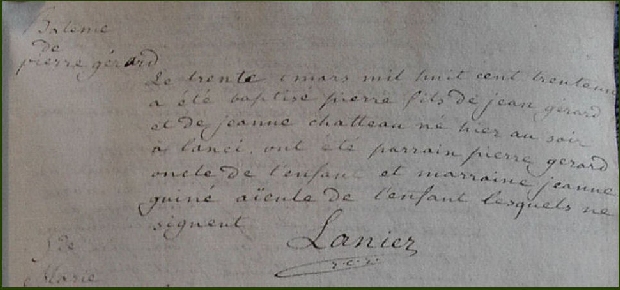 Bateme
de
pierre gérard
Le trente mars mil huit cent trente une
a été baptisé pierre fils de jean gérard
et de jeanne chatteau né hier au soir
à lancé. ont eté parrain pierre gerard
oncle de l'enfant et marraine jeanne
guiné aïeule de l'enfant lesquels ne
signent
Lanier
de
Marie